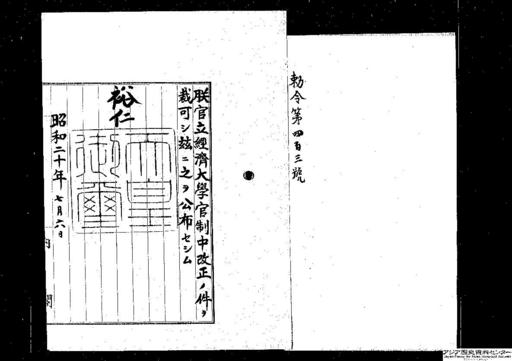 勅令第四百三號
朕官立經濟大學官制中改正ノ件ヲ
裁可シ玆ニ之ヲ公布セシム
裕仁
天皇
御璽
昭和二十年七月六日
内閣
アジア歴史資料センター